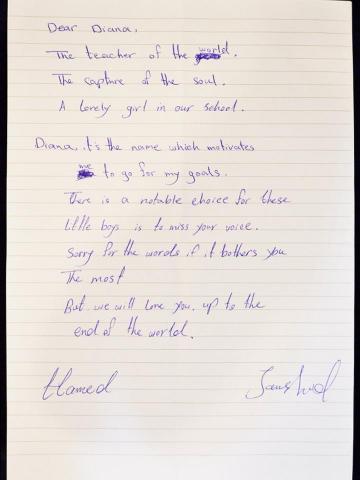 Dear Diana,
The teacher of the world.
The capture of the soul.
A lovely girl in our school.
Diana, it's the name which motivates
me to go for my goals.
There is a notable choice for these
little boys is to miss your voice.
Sorry for the words if it bothers you
The most
But we will love you, up to the
end of the world.
Hamed